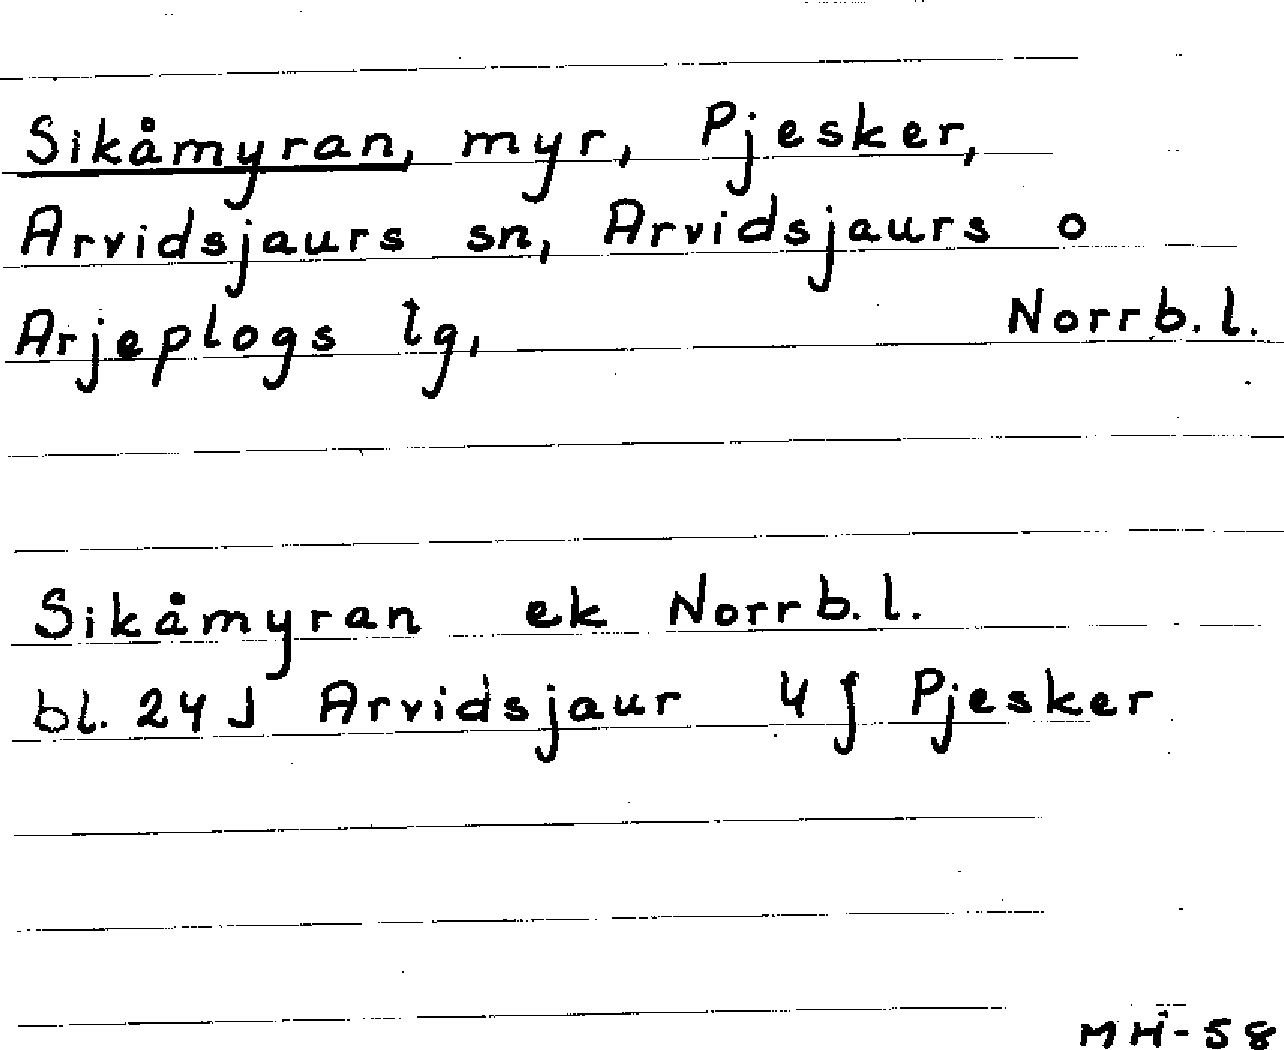 Sikåmyran, myr, Pjesker,
Arvidsjaurs sn, Arvidsjaurs o
Arjeplogs lg, Norrb.l.
Sikåmyran ek Norrb.l.
bl. 24J Arvidsjaur 4 j Pjesker
MH-58